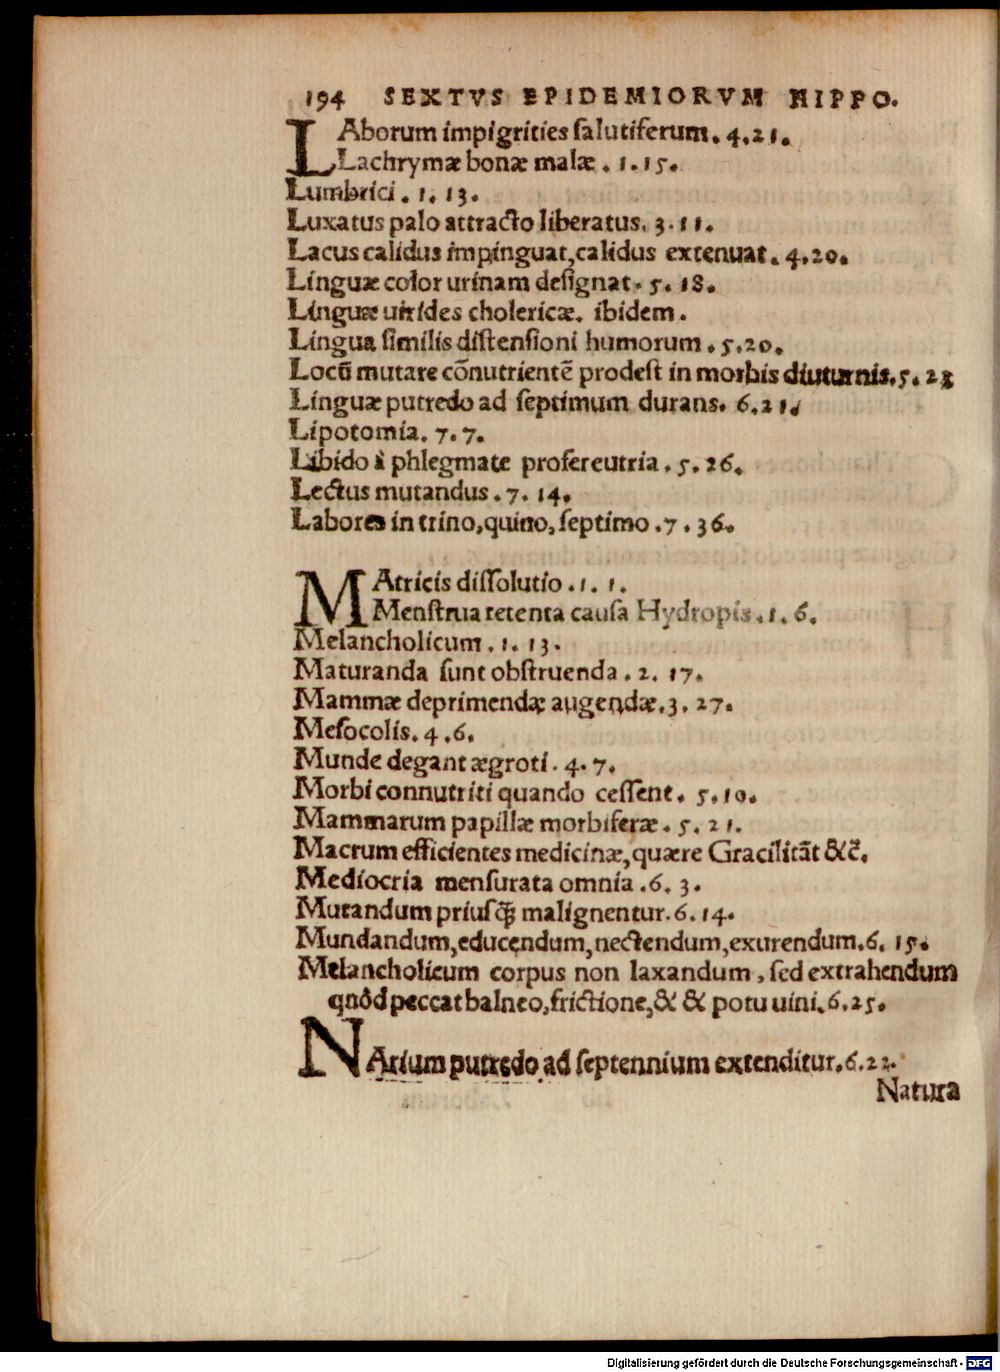 194 SEXTVS EPIDEMIORVM HIPPO.
LAborum impigrities salutiferum. 4.21.
Lachrymæ bonæ malæ. 1.15.
Lumbrici. 1. 13.
Luxatus palo attracto liberatus. 3.11.
Lacus calidus impinguat, calidus extenuat. 4.20.
Linguæ color urinam designat. 5. 18.
Linguæ uirides cholericæ. ibidem.
Lingua similis distensioni humorum. 5.20.
Locū mutare cōnutrientē prodest in morbis diuturnis. 5. 23
Linguæ putredo ad septimum durans. 6.21.
Lipotomia. 7.7.
Libido à phlegmate profereutria. 5. 26.
Lectus mutandus. 7. 14.
Labores in trino, quino, septimo. 7. 36.
MAtricis dissolutio. 1. 1.
Menstrua retenta causa Hydropis. 1. 6.
Melancholicum. 1. 13.
Maturanda sunt obstruenda. 2. 17.
Mammæ deprimendæ augendæ. 3. 27.
Mesocolis. 4.6.
Munde degant ægroti. 4.7.
Morbi connutriti quando cessent. 5.10.
Mammarum papillæ morbiferæ. 5. 21.
Macrum efficientes medicinæ, quære Gracilitāt &c̄.
Mediocria mensurata omnia. 6. 3.
Mutandum priusq̃ malignentur. 6. 14.
Mundandum, educendum, nectendum, exurendum. 6. 15.
Melancholicum corpus non laxandum, sed extrahendum
qnòd peccat balneo, frictione, & & potu uini. 6.25.
NArium putredo ad septennium extenditur. 6.22.
Natura
Digitalisierung gefördert durch die Deutsche Forschungsgemeinschaft - DFG